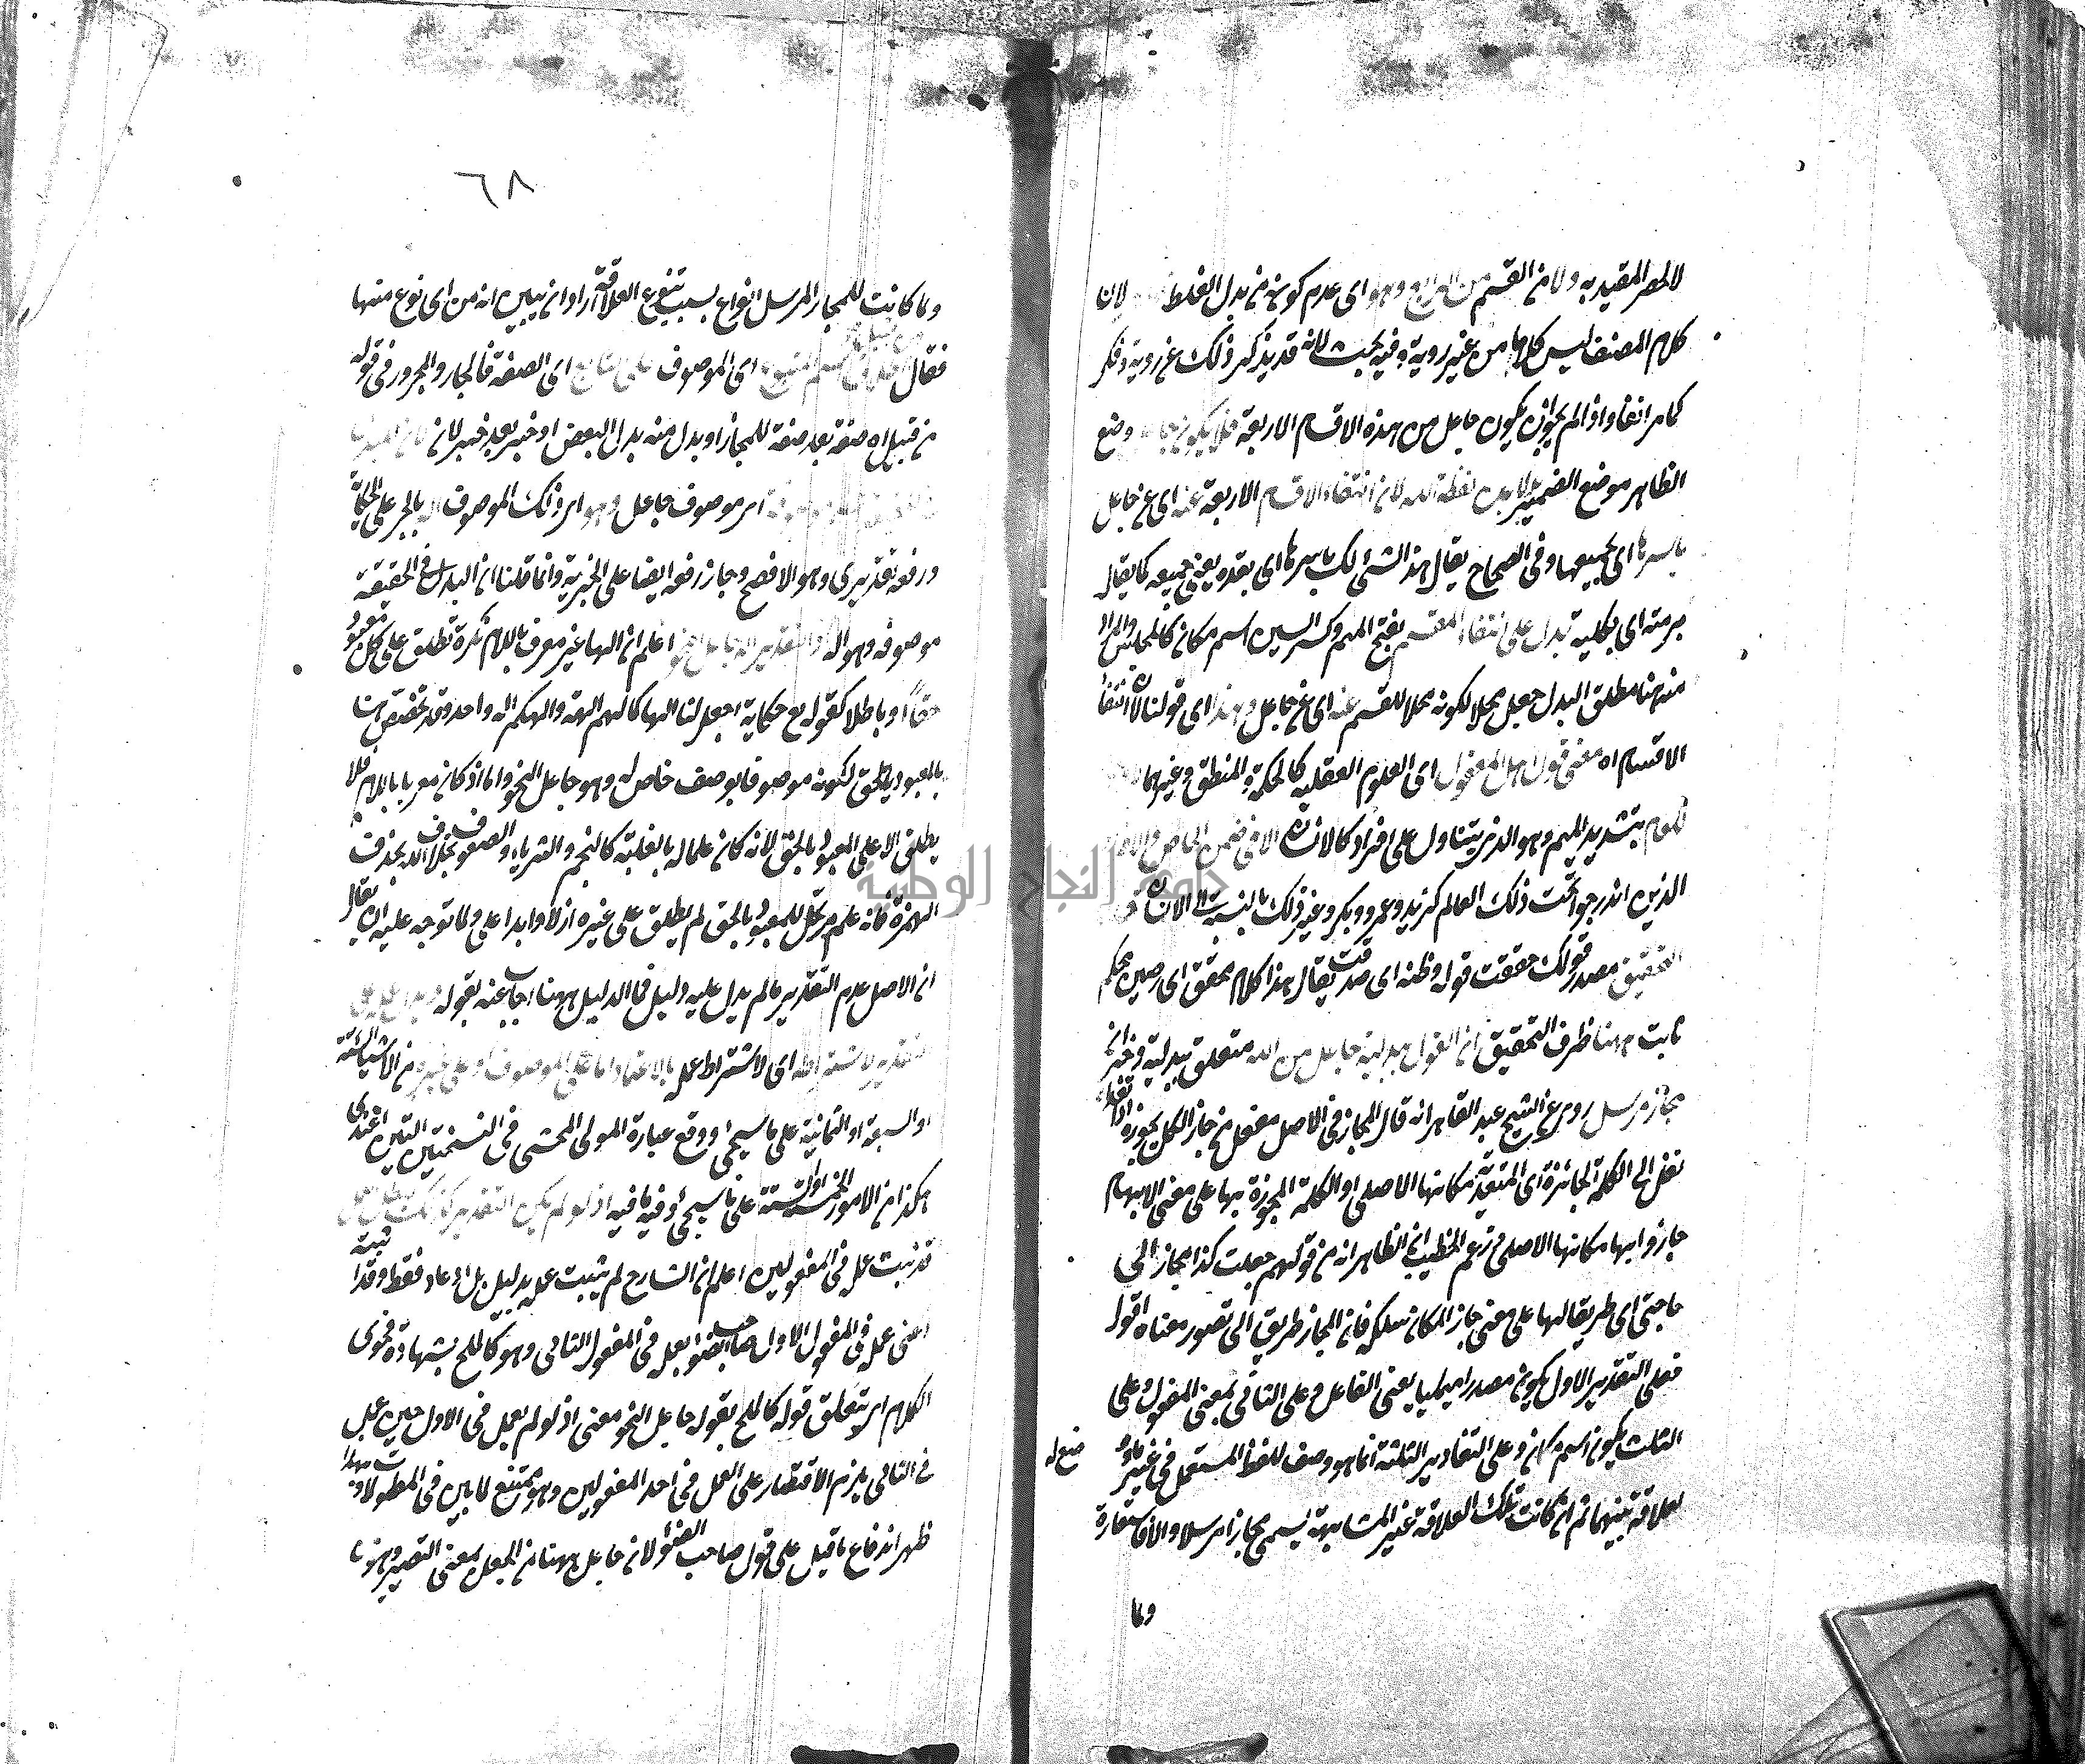 لالحصر المقيد به ولا من القسم من الرابع وهو اى عدم كونه من بدل الغلط لان
كلام المصنف ليس كلاما من غير روية وفيه بحث لانه قد يذكر ذلك عن روية وفكر
كما مر انفا واذا لم يجز ان يكون جاعل من هذه الاقسام الاربعة فلا يكون وضع
الظاهر موضع الضمير بلا بدل لفظة الله لان انتفاء الاقسام الاربعة عنه اى عن جاعل
باسرها اى بجميعها وفى الصحاح يقال هذا الشئ لك باسره اى بقده يعنى جميعه كما يقال
برمته اى بكليه تدل على انتفاء المقسم بفتح الميم وكسر السين اسم مكان كالمجلس والمراد
منه هنا مطلق البدل جعل محلا لكونه محلا للقسم عنه اى عن جاعل وهذا اى قولنا لان انتفاء
الاقسام اه معنى قول اهل المعقول اى العلوم العقلية كالحكمة والمنطق وغيرهما
للعام بتشديد الميم وهو الذى يتناول على افراد كالانسان الا فى ضمن الخاص
الذين اندرجوا تحت ذلك العالم كزيد وعمرو وبكر وغير ذلك بالنسبة الى الانسان
التحقيق مصدر قولك حققت قوله وظنه اى صدقت يقال هذا كلام محقق اى رصين محكم
ثابت ههنا ظرف التحقيق ان القول ببدلية جاعل من الله متعلق ببدلية وخبر ان
مجاز مرسل روى عن الشيخ عبد القاهر انه قال المجاز فى الاصل مفعل من جاز المكان يجوزه اذا تعداه
نقل الى الكلمة الجائزة اى المتعدية مكانها الاصلى او الكلمة المجوزة بها على معنى الابهام
جازوا بها مكانها الاصلى زعم الخطيب ان الظاهر انه من قولهم جعلت كذا مجازا الى
حاجتى اى طريقا لها على معنى جاز المكان سلكه فان المجاز طريق الى تصور معناه اقول
فعلى التقدير الاول يكون مصدرا ميميا بمعنى الفاعل وعلى الثانى بمعنى المفعول وعلى
الثلث يكون اسم مكان وعلى التقادير الثلثة انما هو وصف للفظ المستعمل فى غير ما وضع له
لعلاقة بينهما ثم ان كانت تلك العلاقة غير المشابهة يسمى مجازا مرسلا والا فاستعارة
ولما
٦٨
ولما كانت للمجاز المرسل انواع بسبب تنوع العلاقة اراد ان يبين انه من اى نوع منها
فقال اطلاق اسم المتبوع اى الموصوف على التابع اى الصفة فالجار والمجرور فى قوله
من قبيل اه صفة بعد صفة للمجاز او بدل منه بدل البعض او خبر بعد خبر لان
امر موصوف جاعل وهو اى ذلك الموصوف اله بالجر على الحكاية
ورفعه تقديرى وهو الافصح وجاز رفعه ايضا على الخبرية وانما قلنا ان البدل فى الحقيقة
موصوفه وهو اله والتقدير اله جاعل النحو اعلم ان الها غير معرف باللام نكرة تطلق على كل معبود
حقا او باطلا كقوله تع حكاية اجعل لنا الها كما لهم الهة والهكم اله واحد وقد تخصص هنا
بالمعبود بالحق لكونه موصوفا بوصف خاص له وهو جاعل النحو واما اذ كان معرفا باللام فلا
يطلق الا على المعبود بالحق لانه كان علما له بالغلبة كالنجم والثريا والصعق بخلاف الله بحذف
الهمزة فانه علم مرتجل للمعبود بالحق لم يطلق على غيره ازلا وابدا على ولما توجه عليه ان يقال
ان الاصل عدم التقدير ما لم يدل عليه دليل فما الدليل ههنا اجاب عنه بقوله
التقدير لاشتراطه اى لاشتراط عمله بالاعتماد اما على الموصوف او على غيره من الاشياء الستة
او السبعة او الثمانية على ما سيجئ ووقع عبارة المولى المحشى فى النسختين اللتين عندى
هكذا من الامور الخمسة او الستة على ما سيجئ وفيه ما فيه اذ لو لم يكن التقدير كذلك
قد ثبت عمل فى المفعولين اعلم ان الشارح لم يثبت عمله بدليل بل ادعاه فقط وقد اثبته
اعنى عمله فى المفعول الاول صاحب الضوء بعمله فى المفعول الثانى وهو كالملح بشهادة فحوى
الكلام اى بتعلق قوله كالملح بقوله جاعل النحو معنى اذ لو لم يعمل فى الاول حين عمل
فى الثانى يلزم الاقتصار على العمل فى احد المفعولين وهو ممتنع لما بين فى المطولات وبهذا
ظهر اندفاع ما قيل على قول صاحب الضوء لان جاعل ههنا من الجعل بمعنى التصيير وهو
جامعة النجاح الوطنية